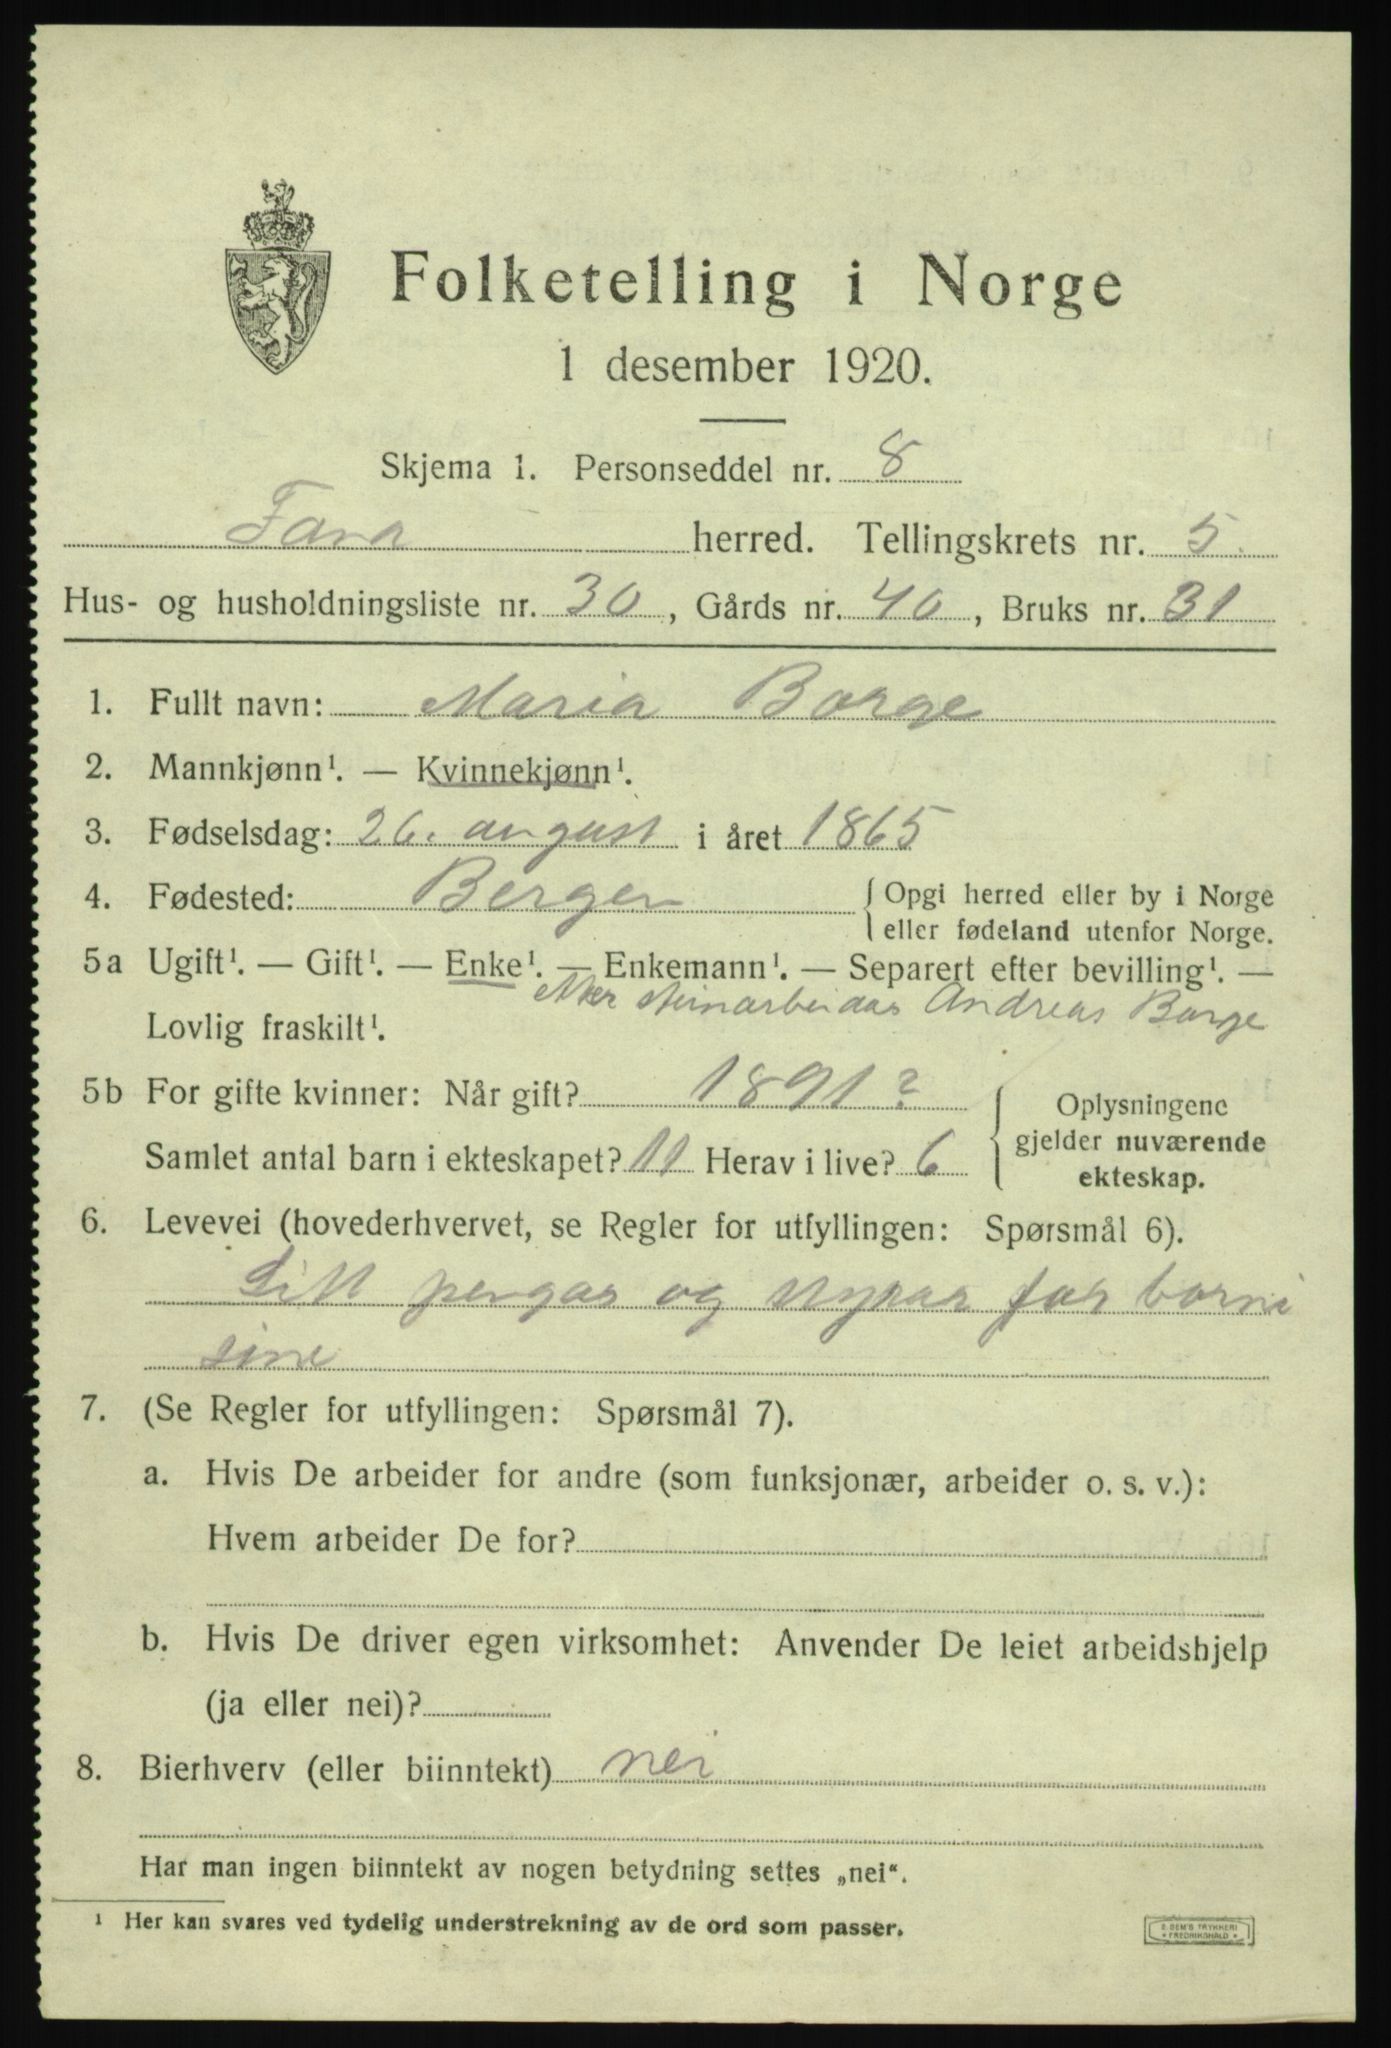 Folketelling i Norge
1 desember 1920.
Skjema 1. Personseddel nr. 8
Fana herred. Tellingskrets nr. 5.
Hus- og husholdningsliste nr. 30, Gårds nr. 40, Bruks nr. 31
1. Fullt navn: Maria Borge
2. Mannkjønn¹. — Kvinnekjønn¹.
3. Fødselsdag: 26. august i året 1865
4. Fødested: Bergen {Opgi herred eller by i Norge
eller fødeland utenfor Norge.
5a Ugift¹. — Gift¹. — Enke¹. — Enkemann¹. — Separert efter bevilling¹. —
etter steinarbeidar Andreas Borge
Lovlig fraskilt¹.
5b For gifte kvinner: Når gift? 1891?
Samlet antal barn i ekteskapet? 11 Herav i live? 6
{Oplysningene
gjelder nuværende
ekteskap.
6. Levevei (hovederhvervet, se Regler for utfyllingen: Spørsmål 6).
Litt pengar og styrar for borni
sine
7. (Se Regler for utfyllingen: Spørsmål 7).
a. Hvis De arbeider for andre (som funksjonær, arbeider o. s. v.):
Hvem arbeider De for?
b. Hvis De driver egen virksomhet: Anvender De leiet arbeidshjelp
(ja eller nei)?
8. Bierhverv (eller biinntekt) nei
Har man ingen biinntekt av nogen betydning settes „nei“.
¹ Her kan svares ved tydelig understrekning av de ord som passer.
E SEM'S TRYKKERI
* FREDRIKSHALD *